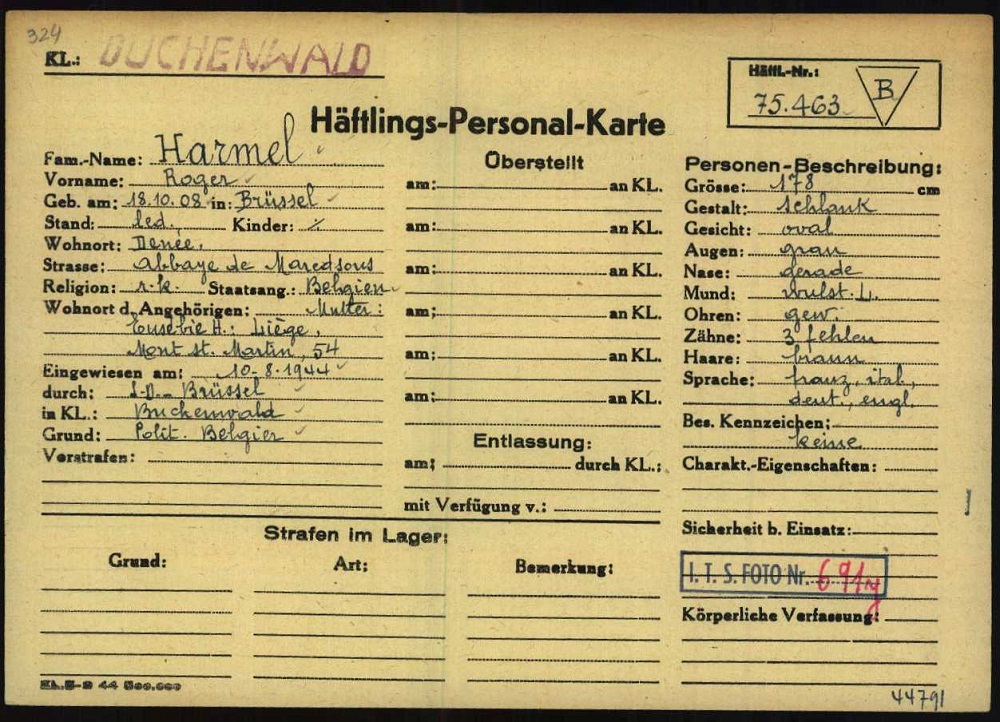 324
KL.: BUCHENWALD
Häftl.-Nr.:
75.463 B
Häftlings-Personal-Karte
Fam.-Name: Harmel
Vorname: Roger
Geb. am: 18.10.08 in: Brüssel
Stand: led. Kinder: ⁒
Wohnort: Denée.
Strasse: Abbaye de Maredsous
Religion: r.k. Staatsang.: Belgien
Wohnort d. Angehörigen: Mutter:
Eusebie H.: Liège,
Mont St. Martin, 54
Eingewiesen am: 10-8-1944
durch: S-D-- Brüssel
in KL.: Buchenwald
Grund: Polit. Belgier
Vorstrafen:
Überstellt
am: an KL.
am: an KL.
am: an KL.
am: an KL.
am: an KL.
am: an KL.
Entlassung:
am: durch KL.:
mit Verfügung v.:
Personen-Beschreibung:
Grösse: 178 cm
Gestalt: schlank
Gesicht: oval
Augen: grau
Nase: gerade
Mund: wulst. L.
Ohren: gew.
Zähne: 3 fehlen
Haare: braun
Sprache: franz, ital.,
deut., engl.
Bes. Kennzeichen:
keine
Charakt.-Eigenschaften:
Sicherheit b. Einsatz:
I. T. S. FOTO Nr. 691
Körperliche Verfassung:
Strafen im Lager:
Grund: Art: Bemerkung:
44791